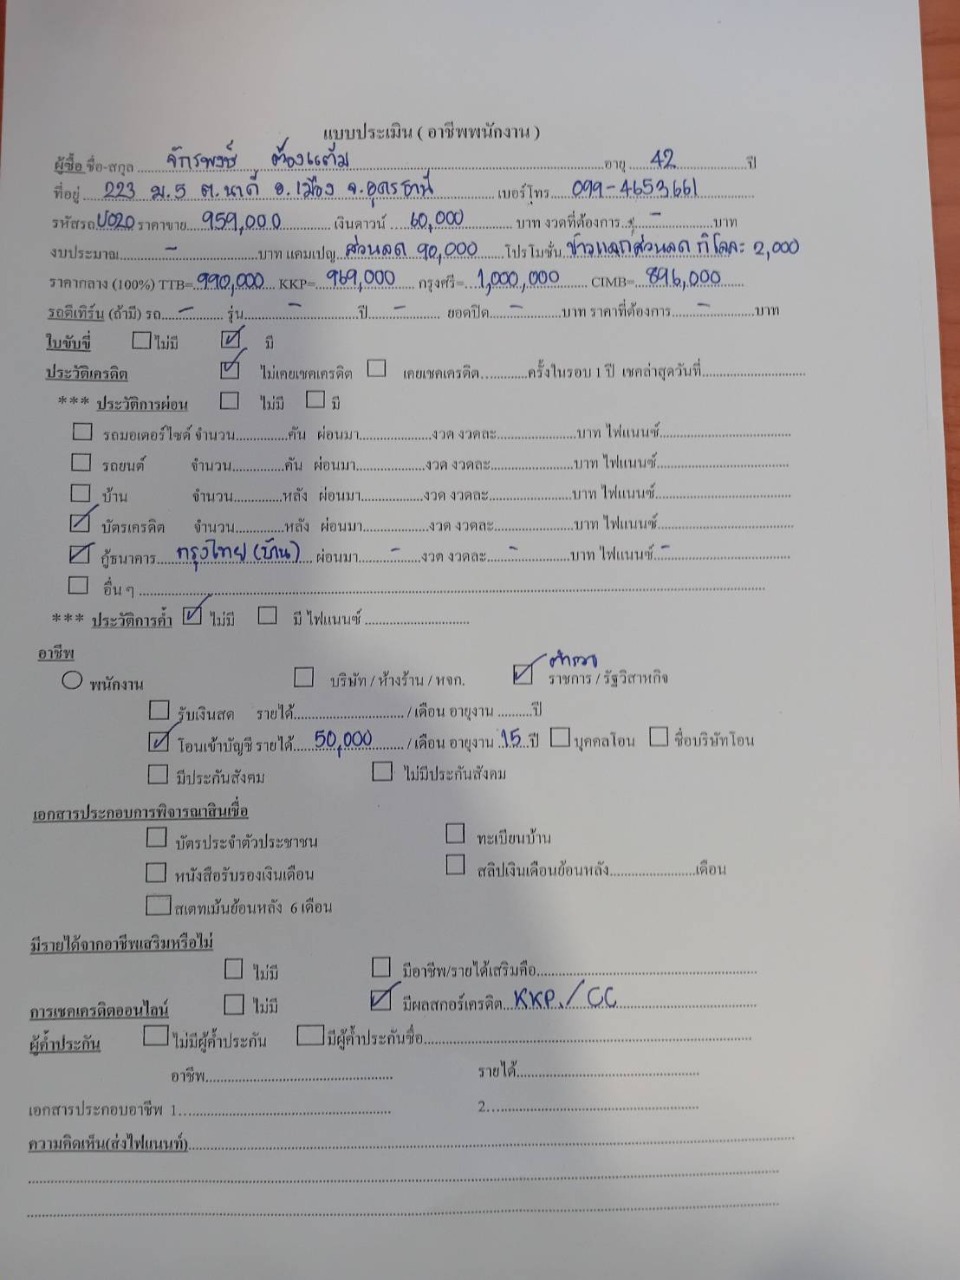 แบบประเมิน ( อาชีพพนักงาน )
ผู้ซื้อ ชื่อ-สกุล จักรพงษ์ ต้องแต้ม อายุ 42 ปี
ที่อยู่ 223 ม.5 ต.นาดี อ.เมือง จ.อุดรธานี เบอร์โทร 099-4653661
รหัสรถ U020 ราคาขาย 959,000 เงินดาวน์ 60,000 บาท งวดที่ต้องการ - บาท
งบประมาณ - บาท แคมเปญ ส่วนลด 90,000 โปรโมชั่น ข้าวแลกส่วนลด กิโลละ 2,000
ราคากลาง (100%) TTB= 990,000 KKP= 969,000 กรุงศรี= 1,000,000 CIMB= 896,000
รถตีเทิร์น (ถ้ามี) รถ - รุ่น - ปี - ยอดปิด - บาท ราคาที่ต้องการ - บาท
ใบขับขี่ ☐ ไม่มี ☑ มี
ประวัติเครดิต ☑ ไม่เคยเชคเครดิต ☐ เคยเชคเครดิต............ครั้งในรอบ 1 ปี เชคล่าสุดวันที่..........................
*** ประวัติการผ่อน ☐ ไม่มี ☐ มี
☐ รถมอเตอร์ไซด์ จำนวน.............คัน ผ่อนมา..................งวด งวดละ....................บาท ไฟแนนซ์................................
☐ รถยนต์ จำนวน.............คัน ผ่อนมา..................งวด งวดละ....................บาท ไฟแนนซ์................................
☐ บ้าน จำนวน.............หลัง ผ่อนมา..................งวด งวดละ....................บาท ไฟแนนซ์................................
☑ บัตรเครดิต จำนวน.............หลัง ผ่อนมา..................งวด งวดละ....................บาท ไฟแนนซ์................................
☑ กู้ธนาคาร กรุงไทย (บ้าน) ผ่อนมา - งวด งวดละ - บาท ไฟแนนซ์ -
☐ อื่น ๆ ................................................................
*** ประวัติการค้ำ ☑ ไม่มี ☐ มี ไฟแนนซ์ ..........................
อาชีพ
ตำรวจ
○ พนักงาน ☐ บริษัท / ห้างร้าน / หจก. ☑ ราชการ / รัฐวิสาหกิจ
☐ รับเงินสด รายได้........................... / เดือน อายุงาน .........ปี
☑ โอนเข้าบัญชี รายได้ 50,000 / เดือน อายุงาน 15 ปี ☐ บุคคลโอน ☐ ชื่อบริษัทโอน
☐ มีประกันสังคม ☐ ไม่มีประกันสังคม
เอกสารประกอบการพิจารณาสินเชื่อ
☐ บัตรประจำตัวประชาชน ☐ ทะเบียนบ้าน
☐ หนังสือรับรองเงินเดือน ☐ สลิปเงินเดือนย้อนหลัง.....................เดือน
☐ สเตทเม้นย้อนหลัง 6 เดือน
มีรายได้จากอาชีพเสริมหรือไม่
☐ ไม่มี ☐ มีอาชีพ/รายได้เสริมคือ......................................................
การเชคเครดิตออนไลน์ ☐ ไม่มี ☑ มีผลสกอร์เครดิต KKP. / CC
ผู้ค้ำประกัน ☐ ไม่มีผู้ค้ำประกัน ☐ มีผู้ค้ำประกันชื่อ................................................................
อาชีพ.............................................. รายได้.............................................
เอกสารประกอบอาชีพ 1..................................................... 2..................................................
ความคิดเห็น(ส่งไฟแนนท์)................................................................